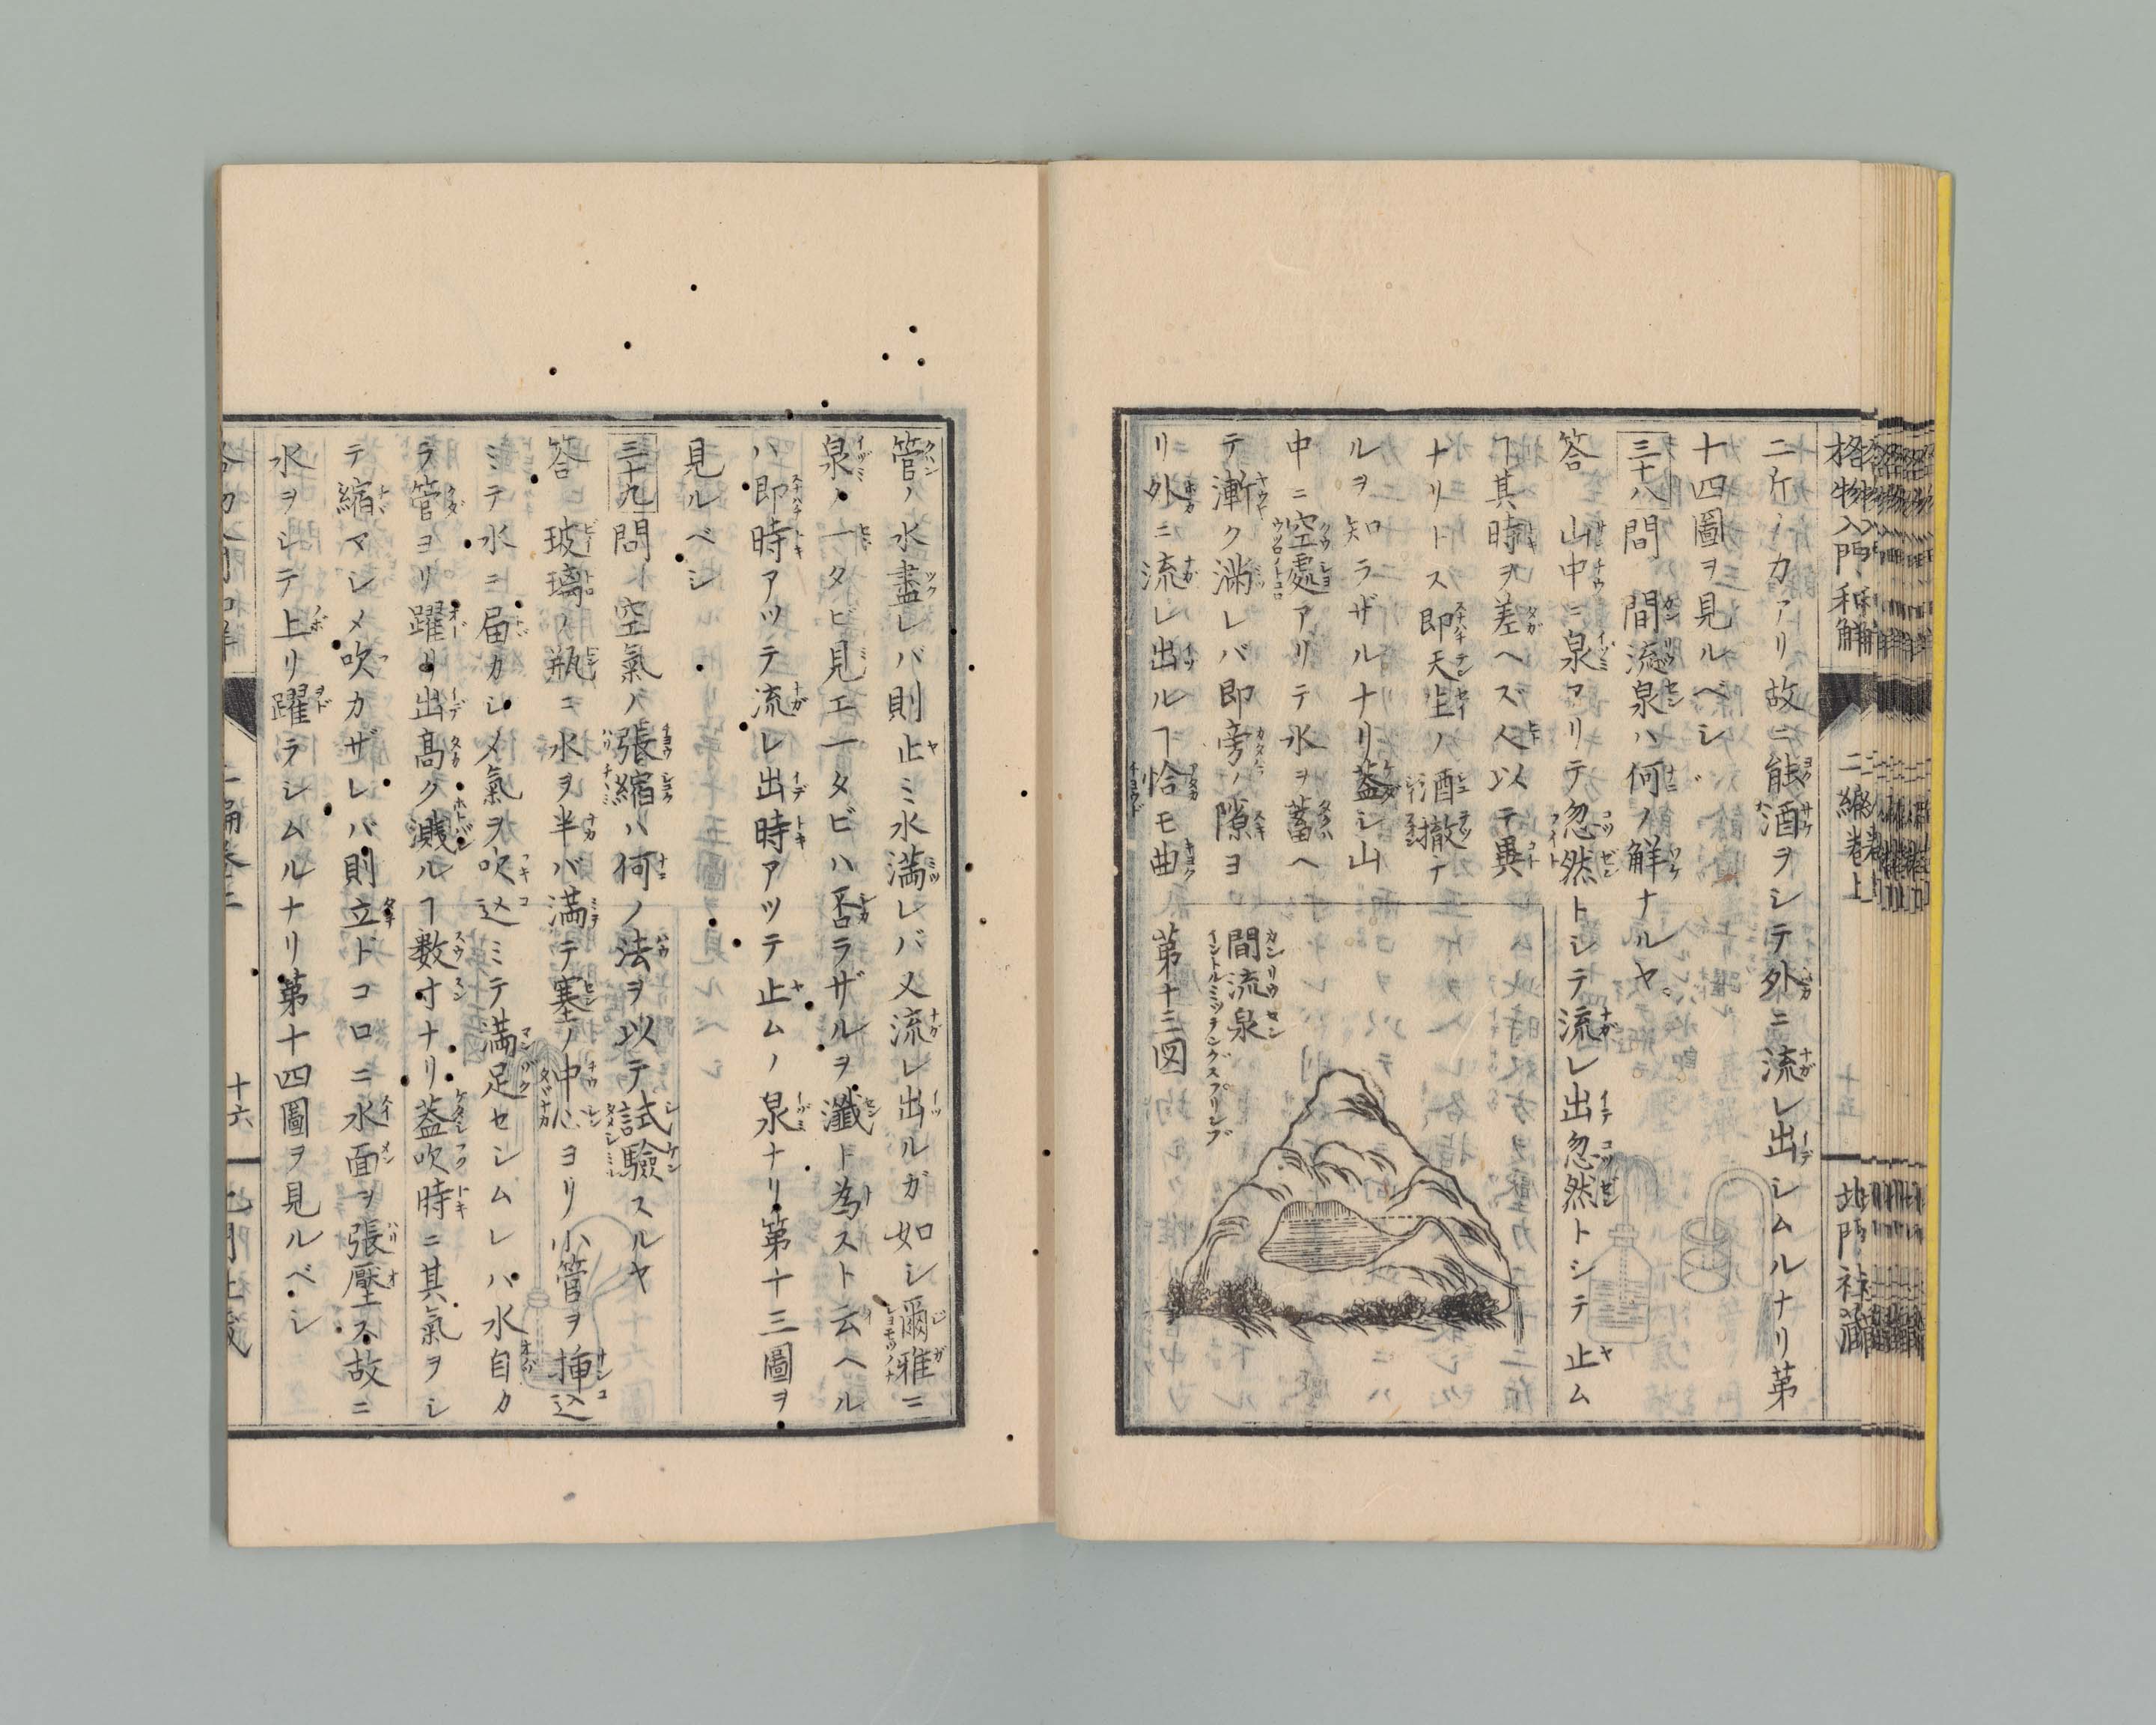 格物入門和解
二編巻上
十五
北門社藏
二斤ノカアリ故ニ能酒ヲシテ外ニ流レ出シムルナリ第
十四圖ヲ見ルベシ
三十八問 間流泉ハ何ノ解ナルヤ
答 山中ニ泉アリテ忽然トシテ流レ出忽然トシテ止ム
ヿ其時ヲ差ヘズ人以テ異
ナリトス即天生ノ酒撤テ
ルヲ知ラザルナリ蓋シ山
中ニ空處アリテ水ヲ蓄ヘ
テ漸ク滿レバ即旁ノ隙ヨ
リ外ニ流レ出ルヿ恰モ曲
間流泉
カンリウセン
イントルミッテングスプリング
第十三図
管ノ水盡レバ則止ミ水滿レバ又流レ出ルガ如シ爾雅ニ
泉ノ一タビ見エ一タビハ否ラザルヲ瀸ト為スト云ヘル
ハ即時アツテ流レ出時アツテ止ムノ泉ナリ第十三圖ヲ
見ルベシ
三十九問 空氣ノ張縮ハ何ノ法ヲ以テ試驗スルヤ
答 玻璃ノ瓶ニ水ヲ半バ滿テ塞ノ中心ヨリ小管ヲ挿込
ミテ水ニ届カシメ氣ヲ吹込ミテ滿足セシムレハ水自カ
ラ管ヨリ躍リ出高ク濺ルヿ数寸ナリ蓋吹時ニ其氣ヲシ
テ縮マシメ吹カザレバ則立ドコロニ水面ヲ張壓ス故ニ
水ヲシテ上リ躍ラシムルナリ第十四圖ヲ見ルベシ
十六